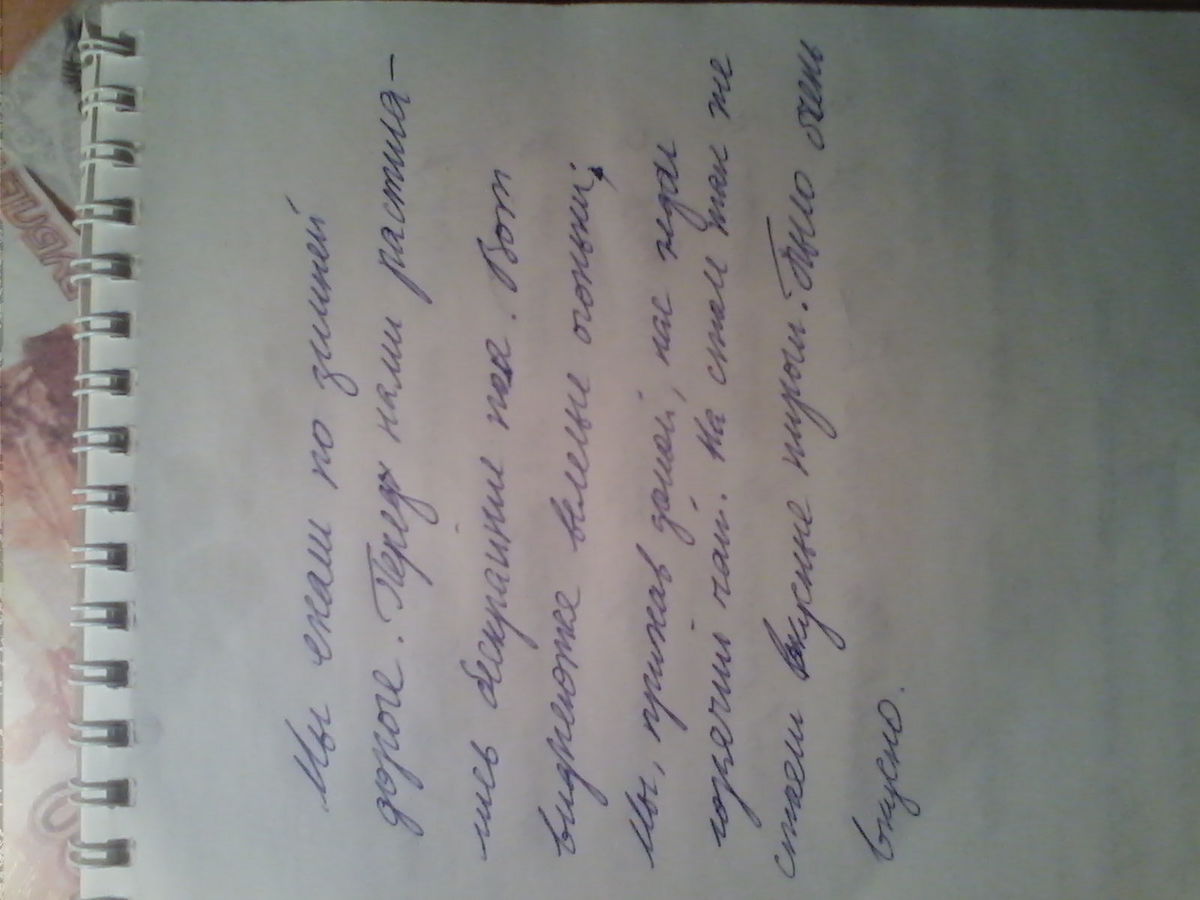 Мы ехали по зимней
дороге. Перед нами растила-
лись бескрайние поля. Вот
виднеются веселые огоньки,
Мы, приехав домой, нас ждал
горячий чай. На столе так же
стояли вкусные пироги. Было очень
вкусно.